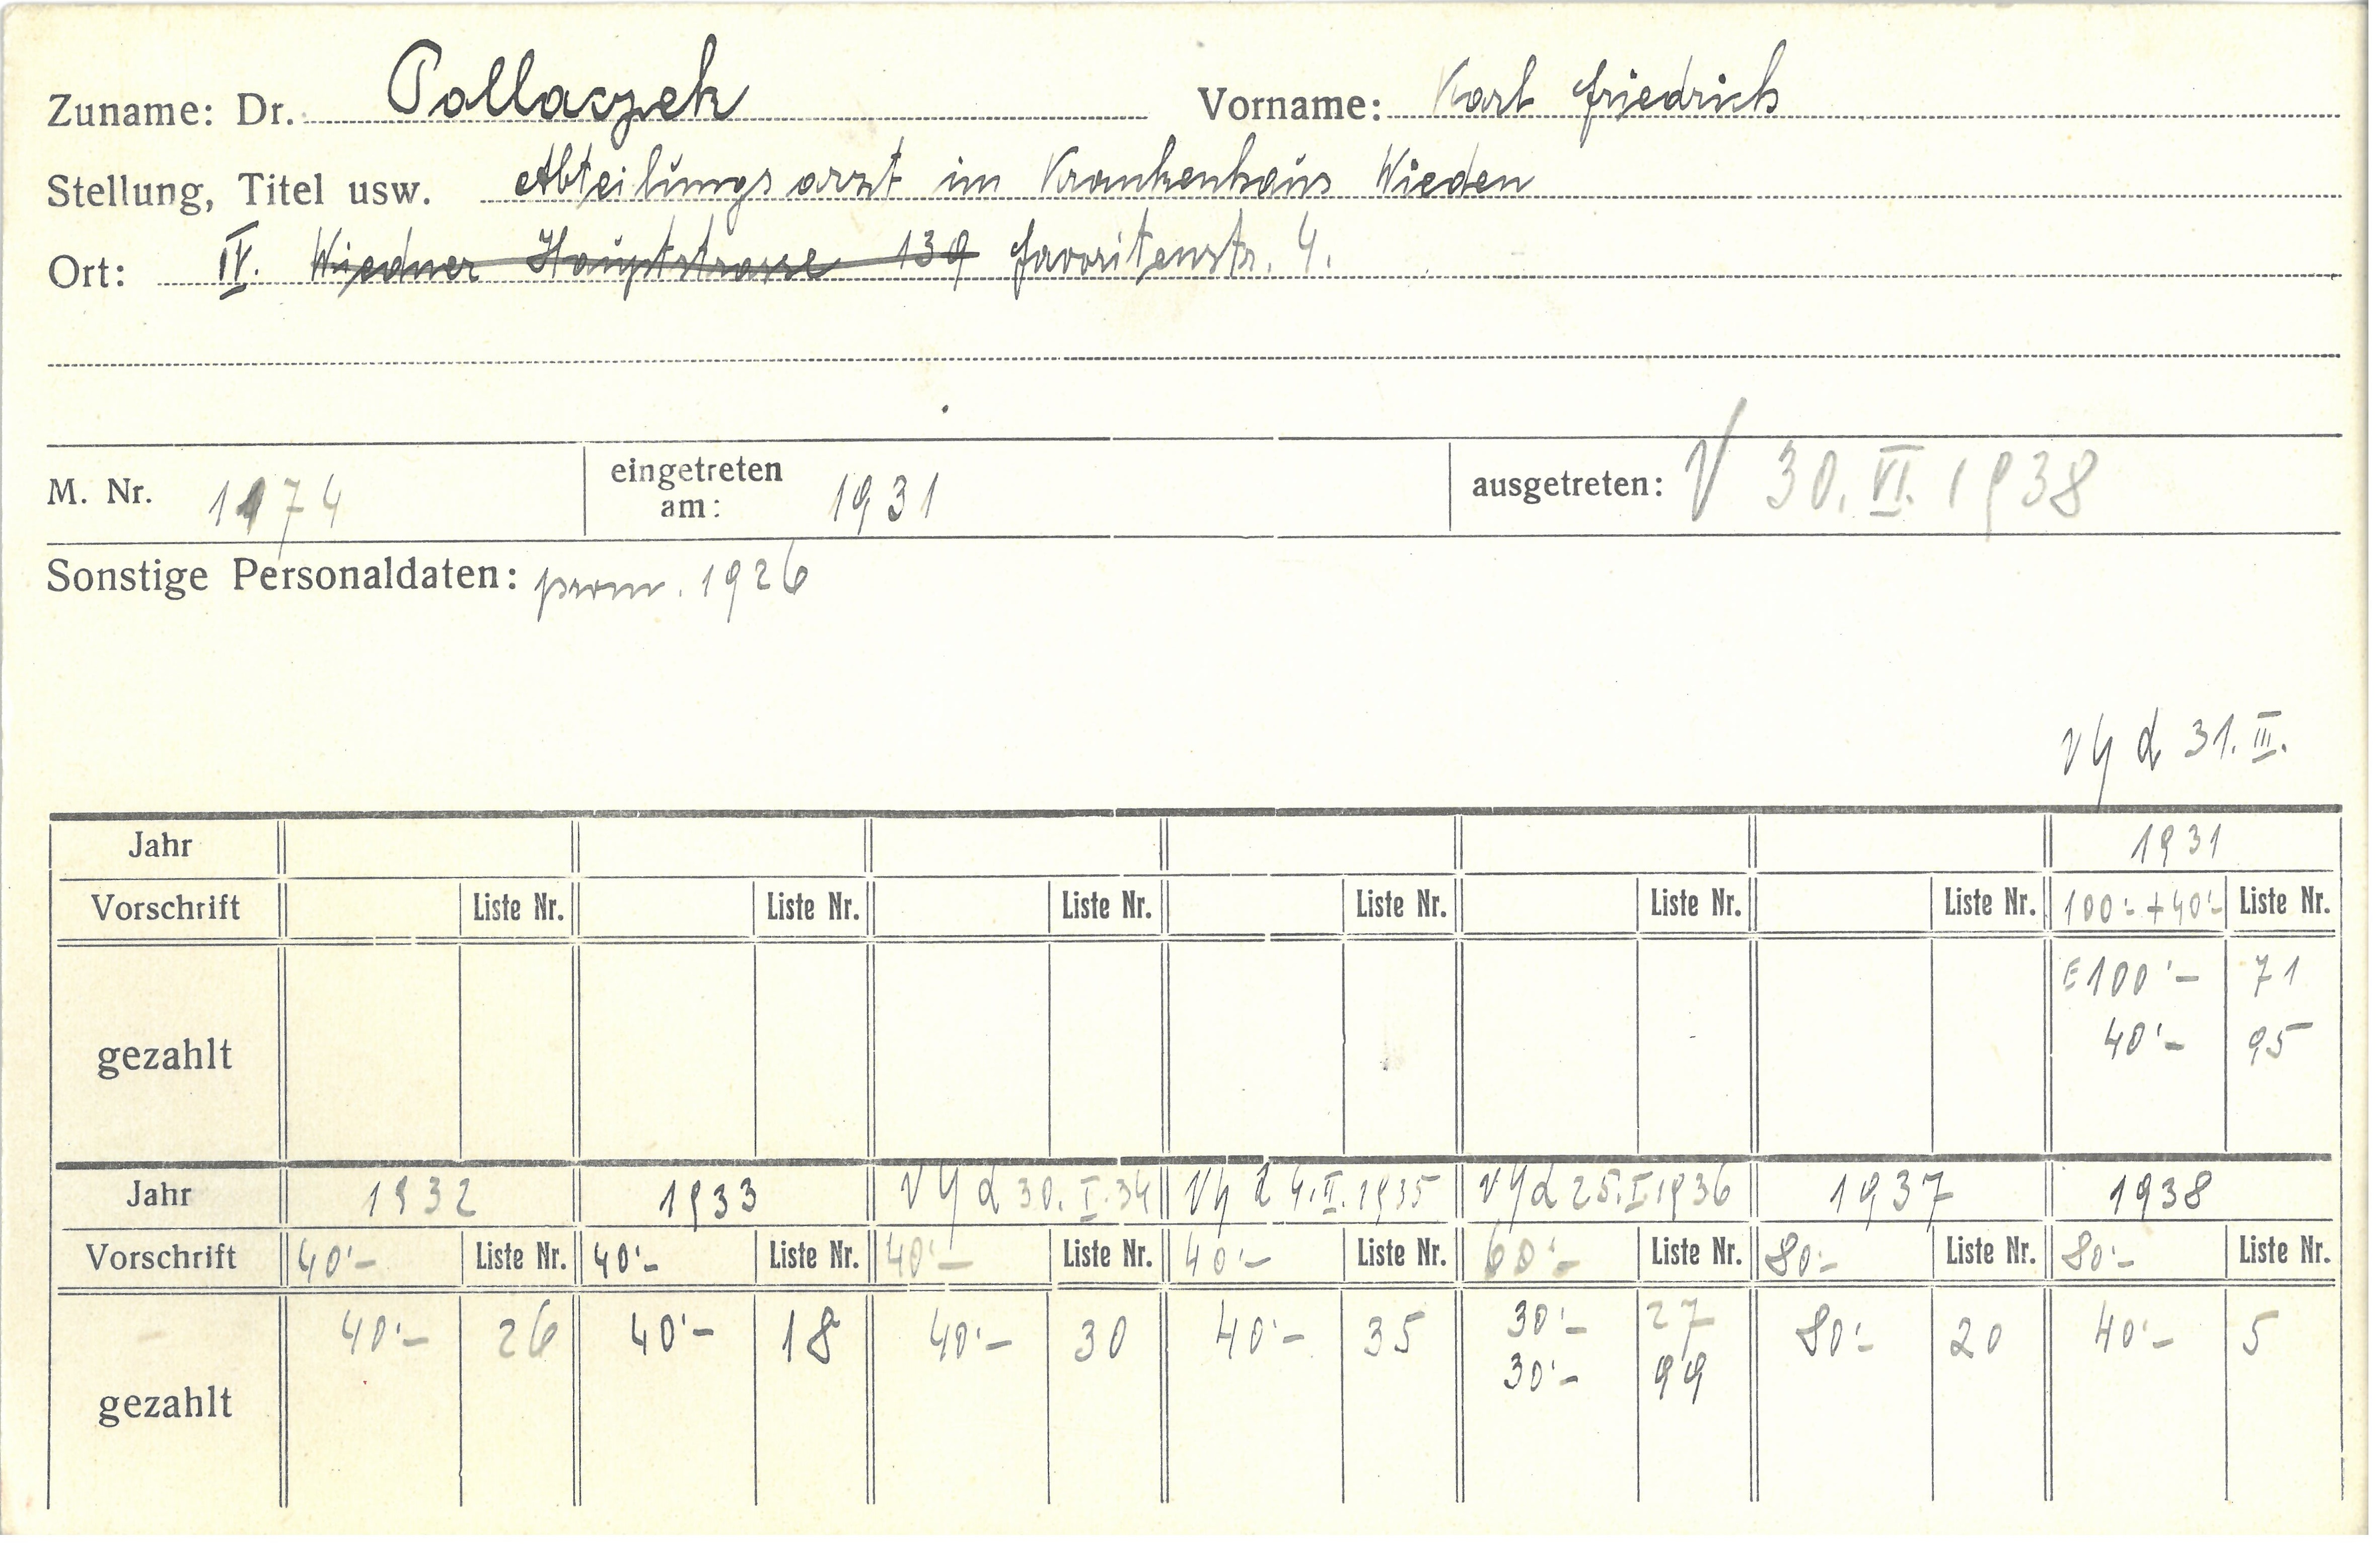 Zuname: Dr. Pollaczek Vorname: Karl Friedrich
Stellung, Titel usw. Abteilungsarzt im Krankenhaus Wieden
Ort: IV. Wiedner Hauptstrasse 139 Favoritenstr. 4.
M. Nr. 1174 eingetreten am: 1931 ausgetreten: V 30. VI. 1938
Sonstige Personaldaten: prom. 1926
31. III.
Jahr 1931
Vorschrift Liste Nr. Liste Nr. Liste Nr. Liste Nr. Liste Nr. Liste Nr. 100'- + 40'- Liste Nr.
gezahlt E 100'- 71
40'- 95
Jahr 1932 1933 30. I. 34 4. II. 1935 25. I 1936 1937 1938
Vorschrift 40'- Liste Nr. 40'- Liste Nr. 40'- Liste Nr. 40'- Liste Nr. 60'- Liste Nr. 80'- Liste Nr. 80'- Liste Nr.
gezahlt 40'- 26 40'- 18 40'- 30 40'- 35 30'- 27 80'- 20 40'- 5
30'- 99